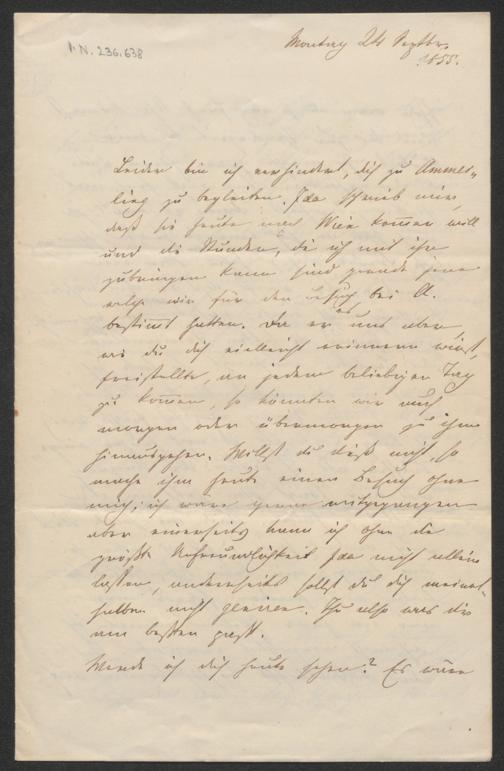 I. N. 236.638
Montag 24 Septbr.
1855.
Leider bin ich verhindert, dich zu Ammer-
ling zu begleiten. Ida schrieb mir,
daß sie heute nach Wien kommen will
und die Stunden, die ich mit ihr
zubringen kann sind gerade jene
welche wir für den Besuch bei A.
bestimmt hatten. Da er es uns aber,
wie du dich vielleicht erinnern wirst,
freistellte, an jedem beliebigen Tag
zu kommen, so könnten wir auch
morgen oder übermorgen zu ihm
hinausgehen. Willst du dieß nicht, so
mache ihm heute einen Besuch ohne
mich; ich wäre gerne mitgegangen
aber einerseits kann ich ohne die
größte Unfreundlichkeit Ida nicht allein
lassen, anderseits sollst du dich meinet-
halben nicht geniren. Thu also was dir
am besten paßt.
Werde ich dich heute sehen? Es wäre